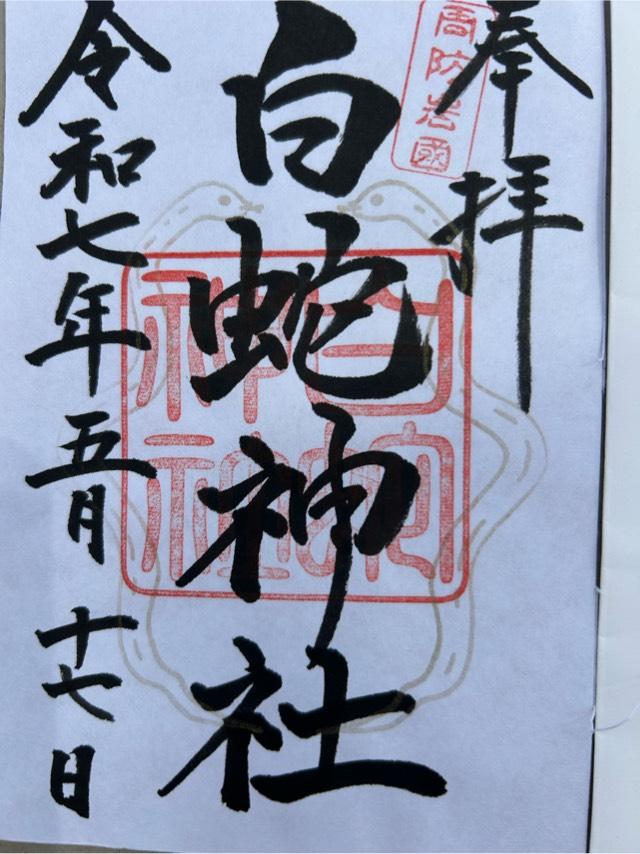 奉拝
周防岩國
白蛇神社
白蛇神社
令和七年五月十七日